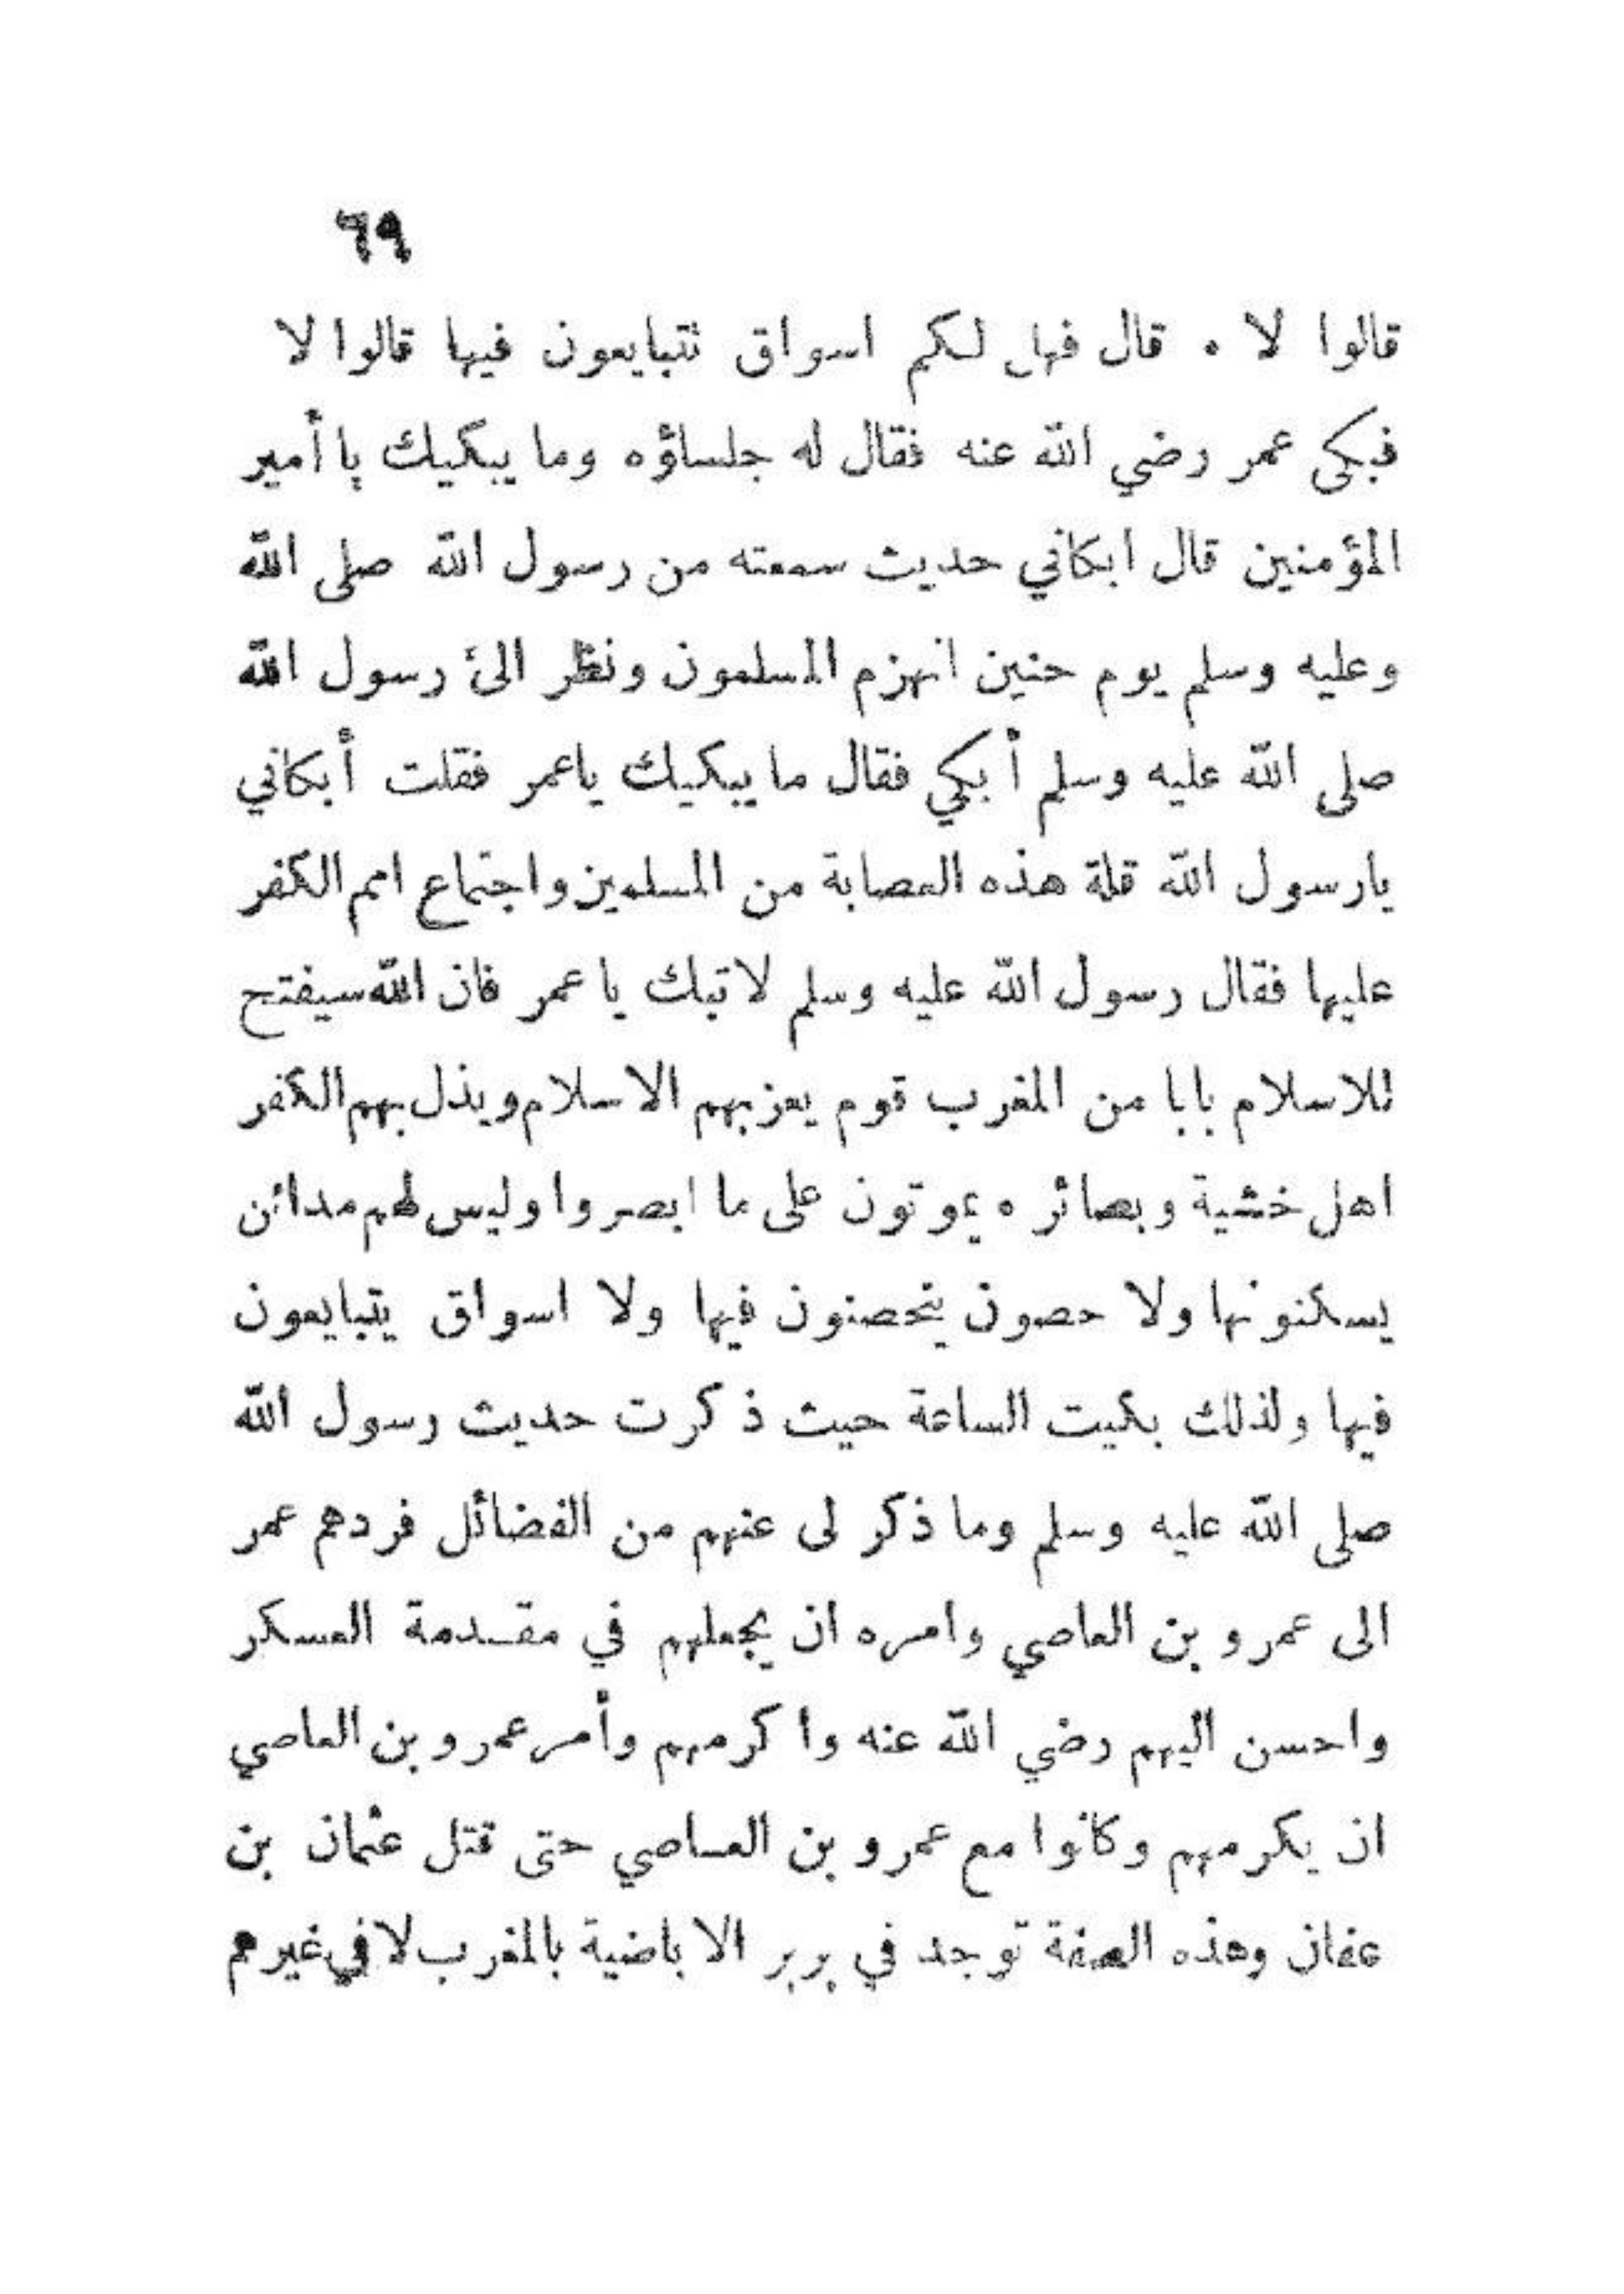 ٦٩
قالوا لا ٠ قال فهل لكم اسواق تتبايعون فيها قالوا لا
فبكى عمر رضي الله عنه فقال له جلساؤه وما يبكيك يا أمير
المؤمنين قال ابكاني حديث سمعته من رسول الله صلى الله
وعليه وسلم يوم حنين انهزم المسلمون ونظر الىّ رسول الله
صلى الله عليه وسلم أبكي فقال ما يبكيك ياعمر فقلت أبكاني
يارسول الله قلة هذه العصابة من المسلمين واجتماع امم الكفر
عليها فقال رسول الله عليه وسلم لاتبك يا عمر فان الله سيفتح
للاسلام بابا من المغرب قوم يعز بهم الاسلام ويذل بهم الكفر
اهل خشية وبصائر ٥ يموتون على ما ابصروا وليس لهم مدائن
يسكنونها ولا حصون يتحصنون فيها ولا اسواق يتبايعون
فيها ولذلك بكيت الساعة حيث ذكرت حديث رسول الله
صلى الله عليه وسلم وما ذكر لى عنهم من الفضائل فردهم عمر
الى عمرو بن العاصي وامره ان يجعلهم في مقدمة العسكر
واحسن اليهم رضي الله عنه واكرمهم وأمر عمرو بن العاصي
ان يكرمهم وكانوا مع عمرو بن العاصي حتى قتل عثمان بن
عفان وهذه الصفة توجد في بربر الاباضية بالمغرب لا في غيرهم